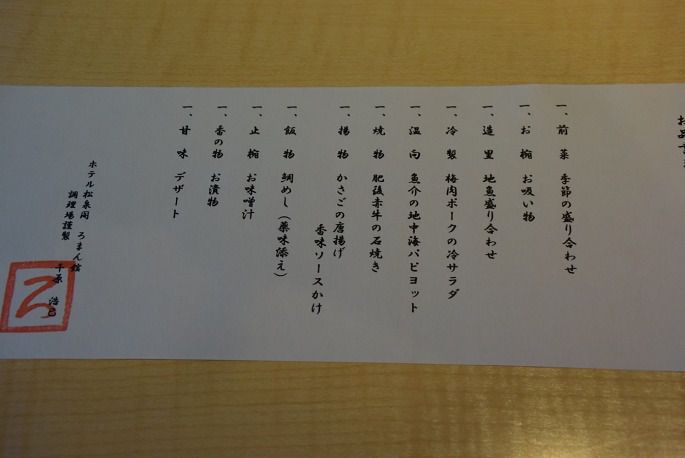 一、前菜 季節の盛り合わせ
一、お椀 お吸い物
一、造里 地魚盛り合わせ
一、冷製 梅肉ポークの冷サラダ
一、温向 魚介の地中海パピヨット
一、焼物 肥後赤牛の石焼き
一、揚物 かさごの唐揚げ
香味ソースかけ
一、飯物 鯛めし（薬味添え）
一、止椀 お味噌汁
一、香の物 お漬物
一、甘味 デザート
ホテル松泉閣 ろまん館
調理場謹製
千原 浩
ろ